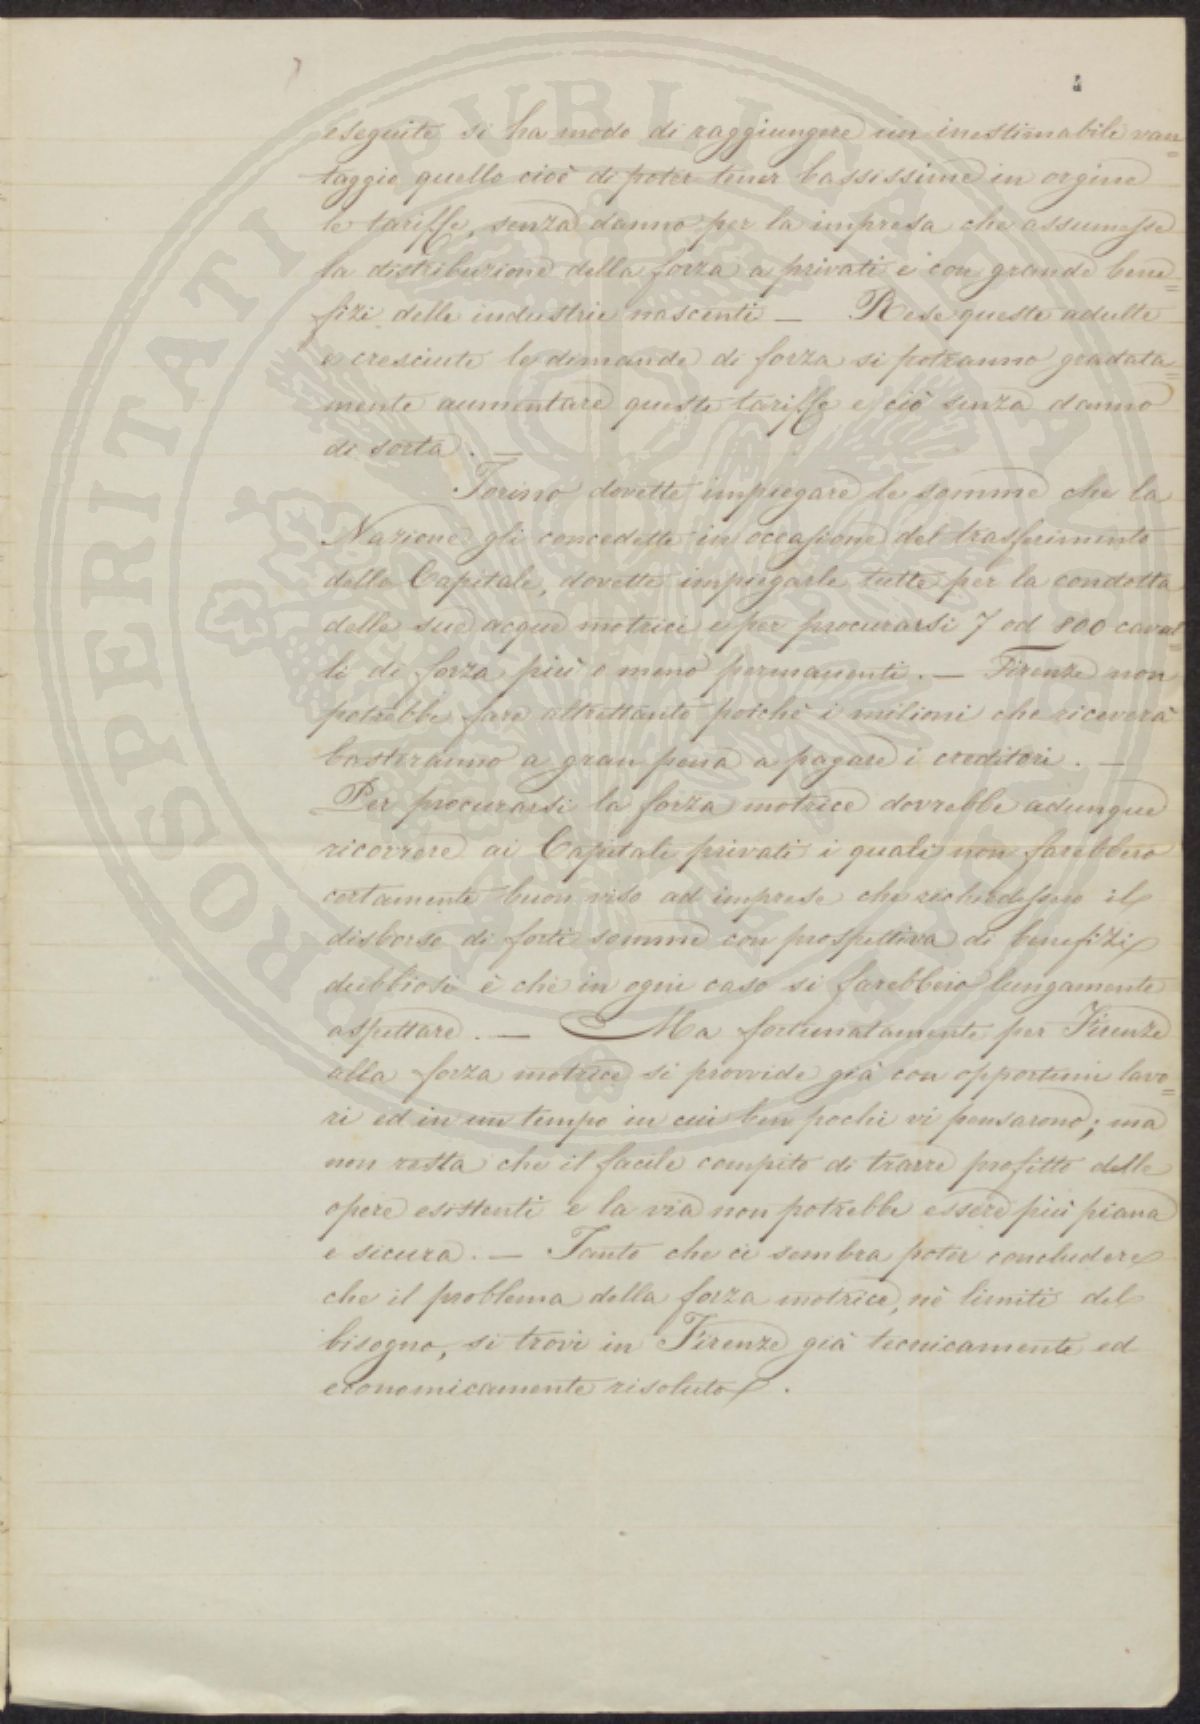 eseguite si ha modo di raggiungere un inestimabile van=
taggio quello cioè di poter tener bassissime in orgine
le tariffe, senza danno per la impresa che assumesse
la distribuzione della forza a privati e con grande bene=
fizi delle industrie nascenti — Rese queste adulte
e cresciute le domande di forza si potranno gradata=
mente aumentare queste tariffe e ciò senza danno
di sorta. —
Torino dovette impiegare le somme che la
Nazione gli concedette in occasione del trasferimento
della Capitale, dovette impiegarle tutte per la condotta
delle sue acque motrici e per procurarsi 7 od 800 caval=
li di forza più o meno permanenti. — Firenze non
potrebbe fare altrettanto poichè i milioni che riceverà
basteranno a gran pena a pagare i creditori. —
Per procurarsi la forza motrice dovrebbe adunque
ricorrere ai Capitali privati i quali non farebbero
certamente buon viso ad imprese che richiedessero il
disborso di forti somme con prospettiva di benefizi
dubbiosi e che in ogni caso si farebbero lungamente
aspettare. — Ma fortunatamente per Firenze
alla forza motrice si provvide già con opportuni lavo=
ri ed in un tempo in cui ben pochi vi pensarono; ma
non resta che il facile compito di trarre profitto delle
opere esistenti e la via non potrebbe essere più piana
e sicura. — Tanto che ci sembra poter concludere
che il problema della forza motrice, nè limiti del
bisogno, si trovi in Firenze già tecnicamente ed
economicamente risoluto.
PROSPERITATI PVBLICAE AVGENDAE